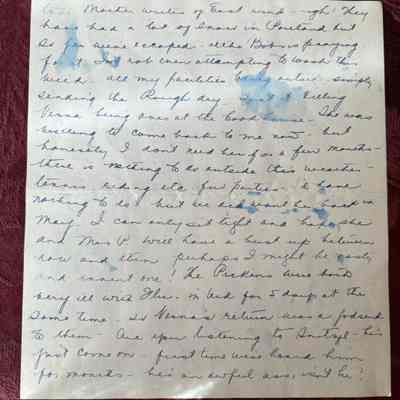 Mother writes of East wind - ugh! They
have had a lot of snow in Portland but
so far we've escaped -
first. not even attempting to wash this
week - all my facilities being
sending the Rough dry -
Verna being over at the
willing to come back to me now - but
honestly I don't need her for a few months -
there is nothing to do outside this weather -
tennis, riding etc few parties - I have
nothing to do but we did want her back in
May. I can only sit tight and hope she
and Mrs P. will have a bust up between
now and then perhaps I might be nasty
and invent one! The Pickens were both
very ill with Flu - in bed for 5 days at the
same time - so Verna's return was a godsend
to them - Are you listening to - he's
just come on - first time we've heard him
for months - he's an awful ass, isn't he?